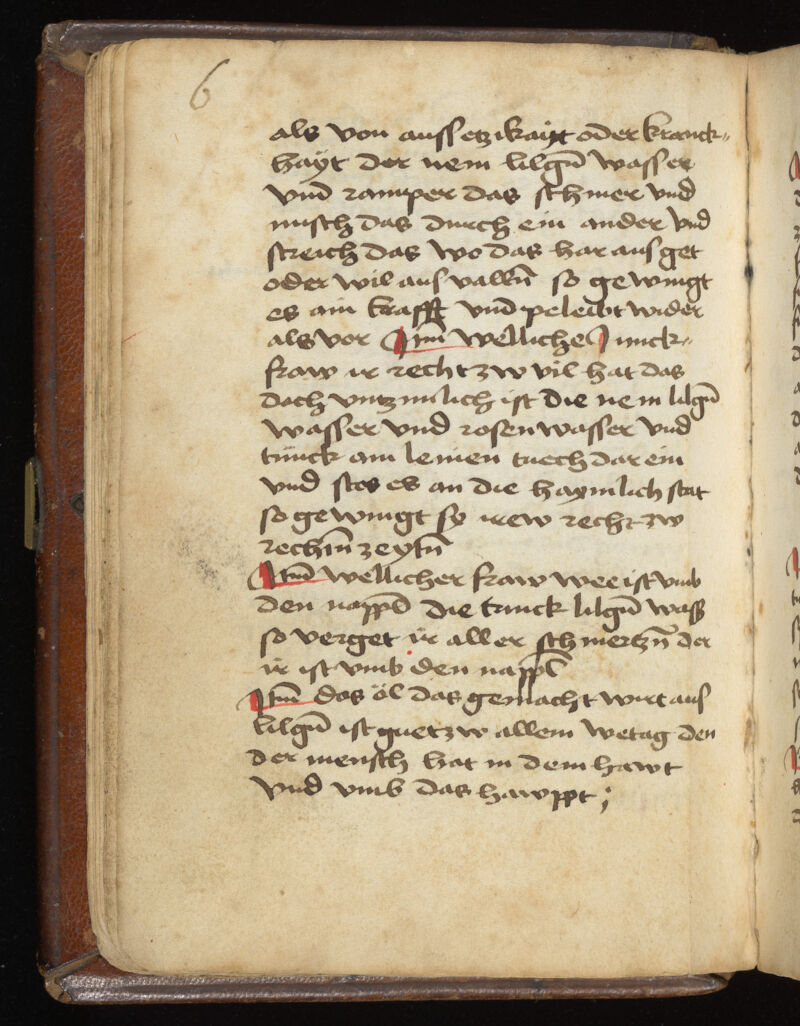 6
als von aussetzikaitt oder kranck„
hayt der nem lilgn̄ wasser
vnd ramper das schmer vnd
misch das durch ein ander vnd
streich das wo das har aus get
oder wil aus valln̄ so gewingt
es ain krafft vnd peleibt wider
als vor Itm̄ welliche Junck„
fraw ir recht zw vil hat das
doch vntzimlich ist die nem lilgn̄
wasser vnd rosen wasser vnd
tunck ain leinen tuech dar ein
vnd stos es an die haymlich stat
so gewingt sy irew recht zw
rechtn̄ zeytn̄
Itm̄ wellicher fraw wee ist vmb
den nappl die trinck lilgn̄ wass
so verget ir aller schmertzn̄ der
ir ist vmb den nappl
Itm̄ das öl das gemacht wirt aus
lilgn̄ ist guet zw allem wetag den
der mensch hat in dem hawt
vnd vmb das hawppt ;